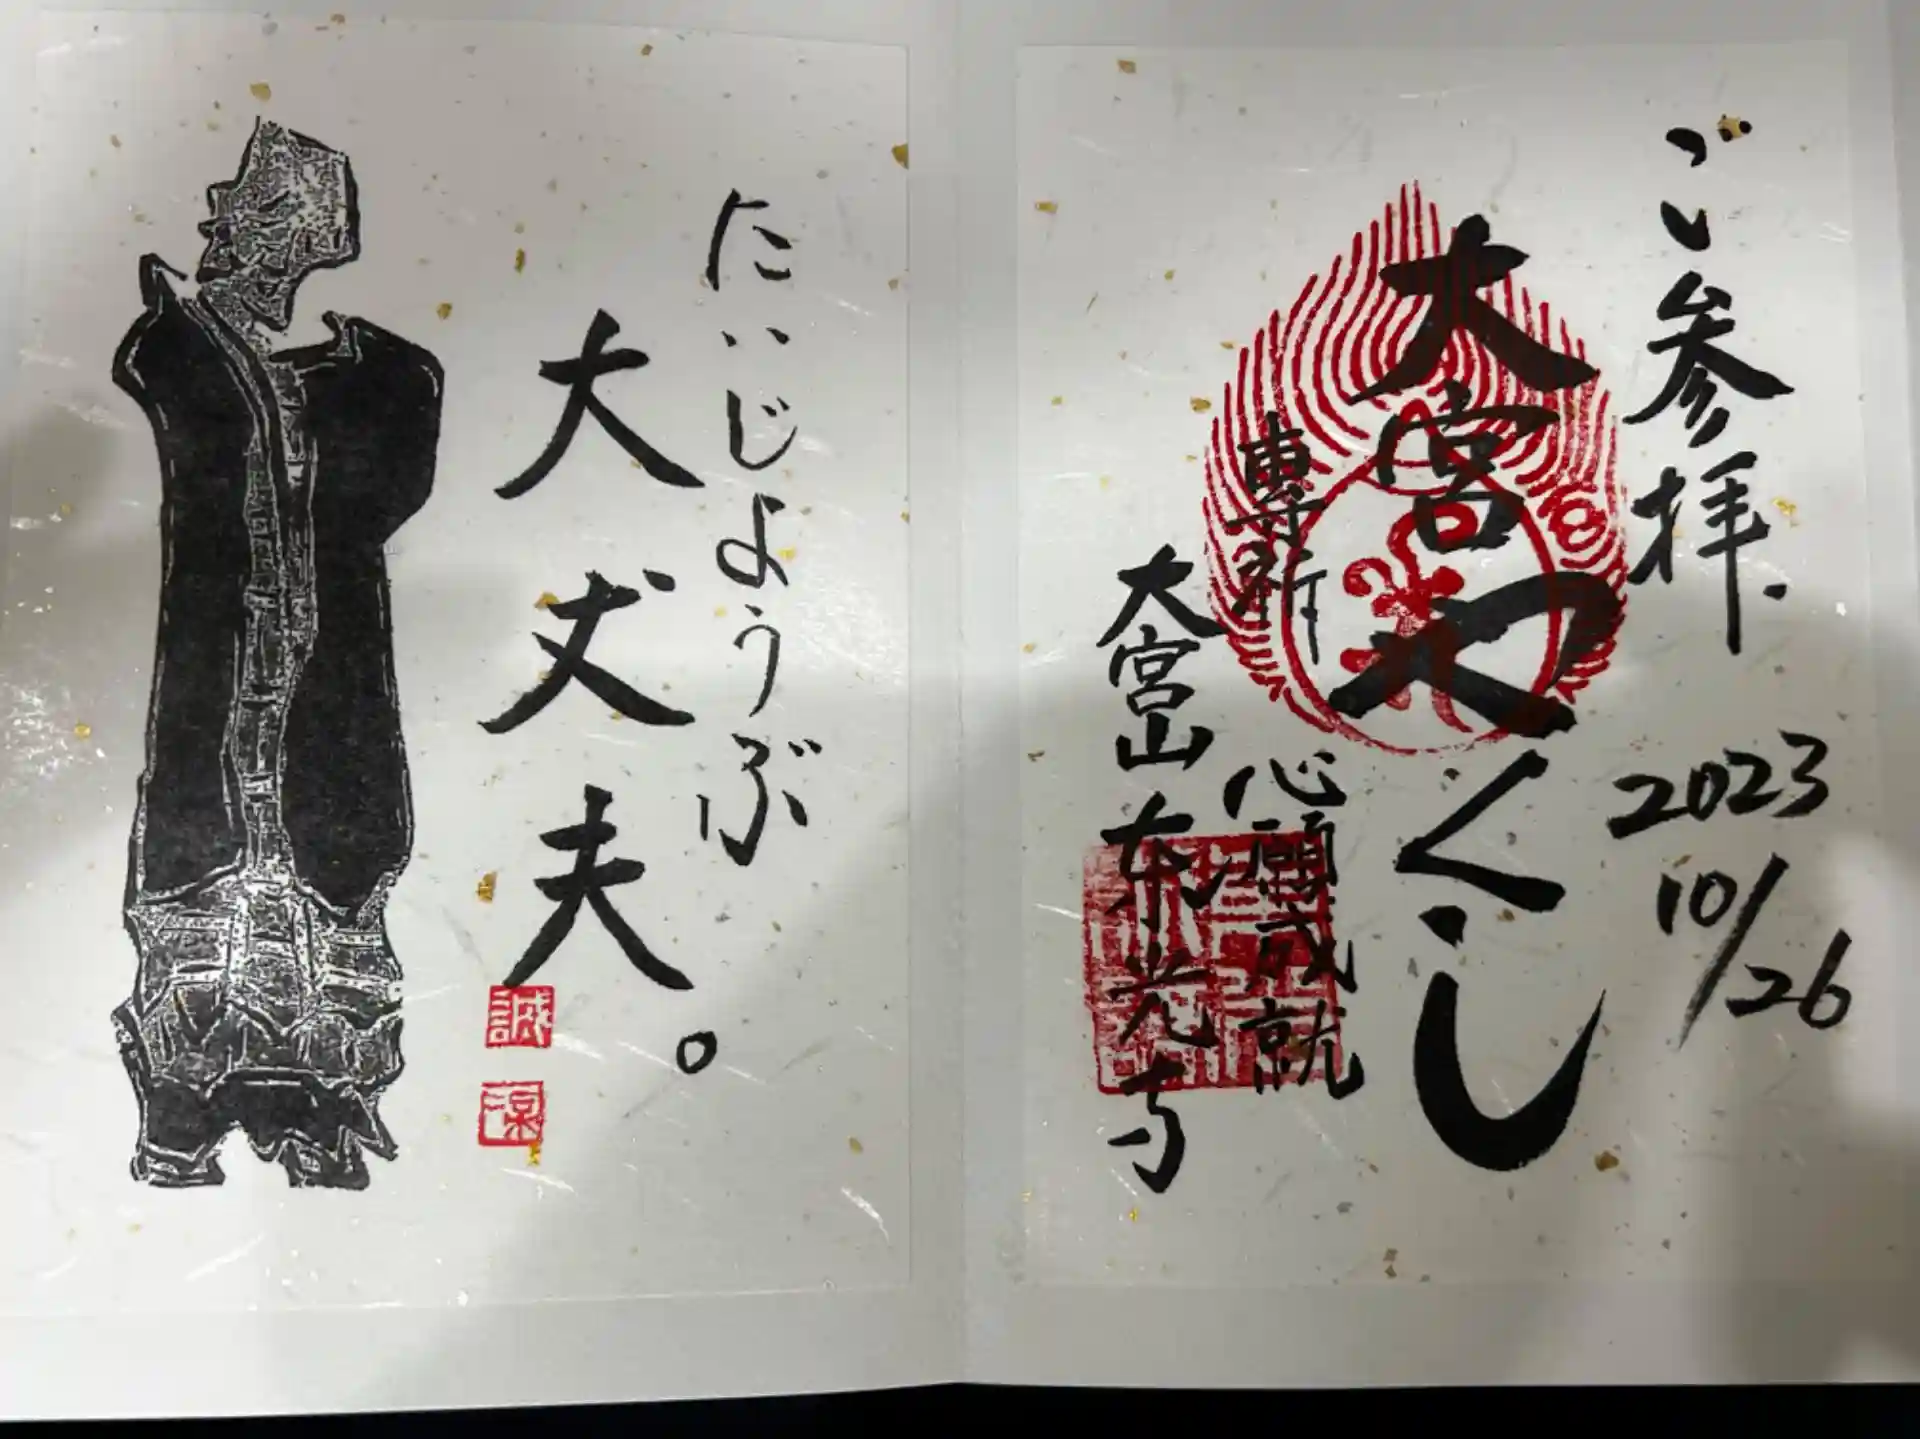 ご参拝.
2023
10/26
大宮やくし
専祈
心願成就
大宮山
東光寺
だいじょうぶ
大丈夫。
誠
涼